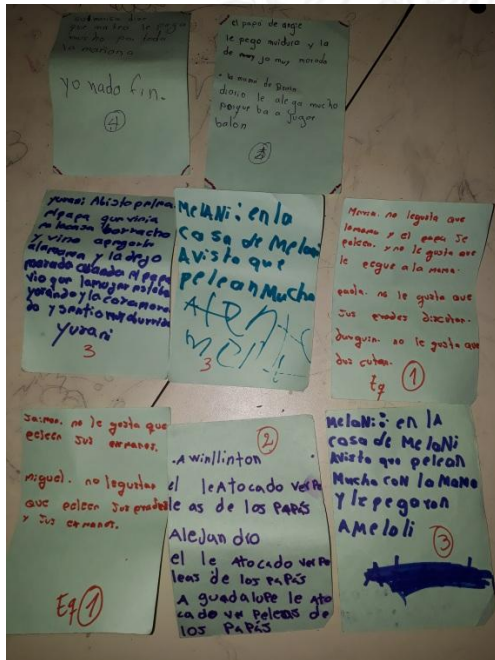 que mama le pega
mucho por toda
la mañana
yo nado fin.
4
El papá de angie
le pego muiduro y la
de jo muy morada
diario le alega mucho
porque ba a jugar
balon
yurani Abisto pelear
borracho
y vino apegarle
alamama y la dejo
cuando el papa
vio que lamujer estaba
yorando y la cara mora
yurani
3
MelANi: en la
casa de Melani
Avisto que
pelean Mucho
3
María. no legusta que
lamama y el papa se
peleen. y no le gusta que
le pegue a la mama.
paola. no le gusta que
sus padres discutan.
no le gusta que
discutan.
Eq 1
Jaime. no le gusta que
peleen sus ermanos.
miguel. no legustan
que peleen sus padres
y sus ermanos.
Eq 1
2
.A winllinton
el leAtocado ver Pe
le as de los PAPÁS
Alejandro
el le Atocado ver Pe
leas de los paPás
A guadalupe le Ato
cado ver Peleas de
los PaPás
MelaNi: en lA
casa de MeloNi
Avisto que pelean
Mucha coN la MaMa
y le pegaron
AMeloli
3